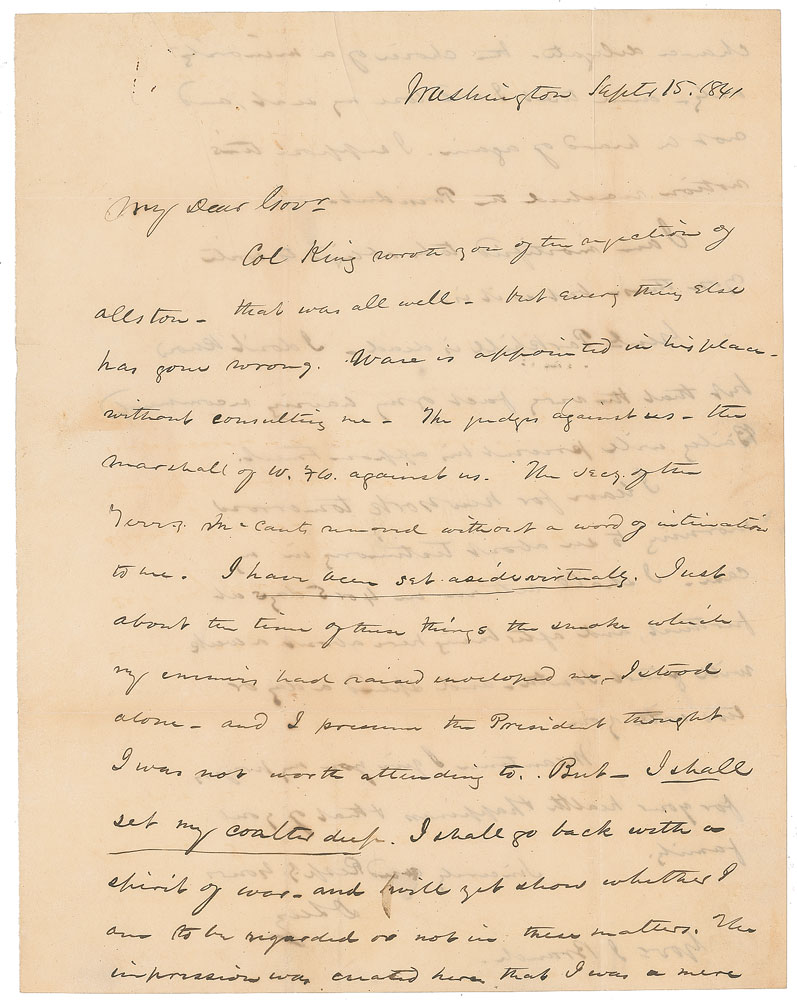 Washington Sept. 15. 1841
My Dear Govr
Col King wrote you of the rejection of
allston - that was all well - but every thing else
has gone wrong. Ware is appointed in his place -
without consulting me - The judges against us - the
marshall of W. Fa. against us. The Secy. of the
Terry. McCants removed without a word of intimation
to me. I have been set aside virtually. Just
about the time of these things the smoke which
my enemies had raised enveloped me, I stood
alone - and I presume the President thought
I was not worth attending to. But - I shall
set my coalter deep. I shall go back with a
spirit of war - and will yet show whether I
am to be regarded or not in these matters. The
impression was created here that I was a mere